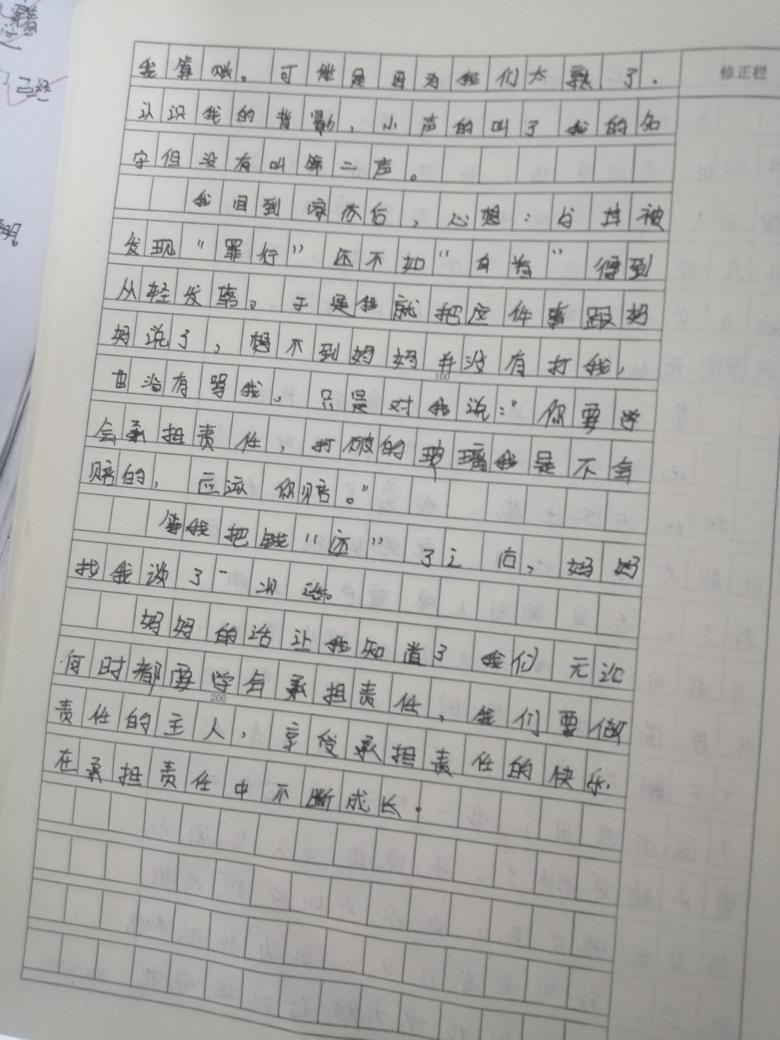 修正栏
我算账。可能是因为我们太熟了.
认识我的背影,小声的叫了我的名
字但没有叫第二声。
我回到家然后,心想:与其被
发现“罪行”还不如“自首”得到
从轻发落。于是我就把这件事跟妈
妈说了,想不到妈妈并没有打我,
也没有骂我,只是对我说:“你要学
会承担责任,打破的玻璃我是不会
赔的,应该你赔。”
等我把钱“还”了之后,妈妈
找我谈了一次话。
妈妈的话让我知道了我们无论
何时都要学会承担责任,我们要做
责任的主人,享受承担责任的快乐.
在承担责任中不断成长.
100
200